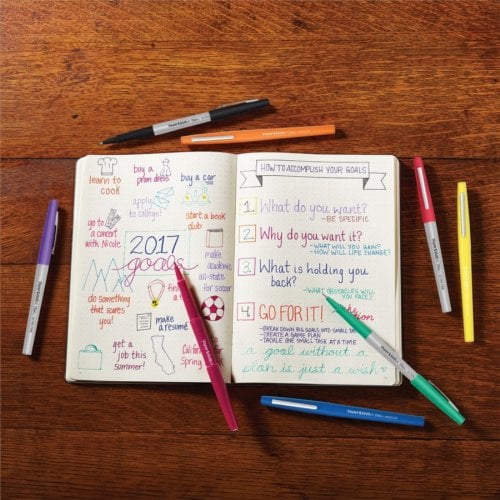 learn to
cook
buy a
prom dress
buy a car
apply
to college!
start a book
club
go to
a concert
with Nicole
2017
goals
make
academic
all-state
for soccer
do something
that scares
you!
make
a résumé
get a
job this
summer!
Spring
HOW TO ACCOMPLISH YOUR GOALS
1 What do you want?
- BE SPECIFIC
2 Why do you want it?
- WHAT WILL YOU GAIN?
- HOW WILL LIFE CHANGE?
3 What is holding you
back?
- WHAT OBSTACLES WILL
YOU FACE?
4 GO FOR IT!
- BREAK DOWN BIG GOALS INTO SMALL
- CREATE A GAME PLAN
- TACKLE ONE SMALL TASK AT A TIME
a goal without a
plan is just a wish
Paper Mate